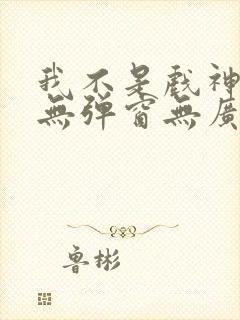 我不是戲神
無彈窗無廣
魯彬